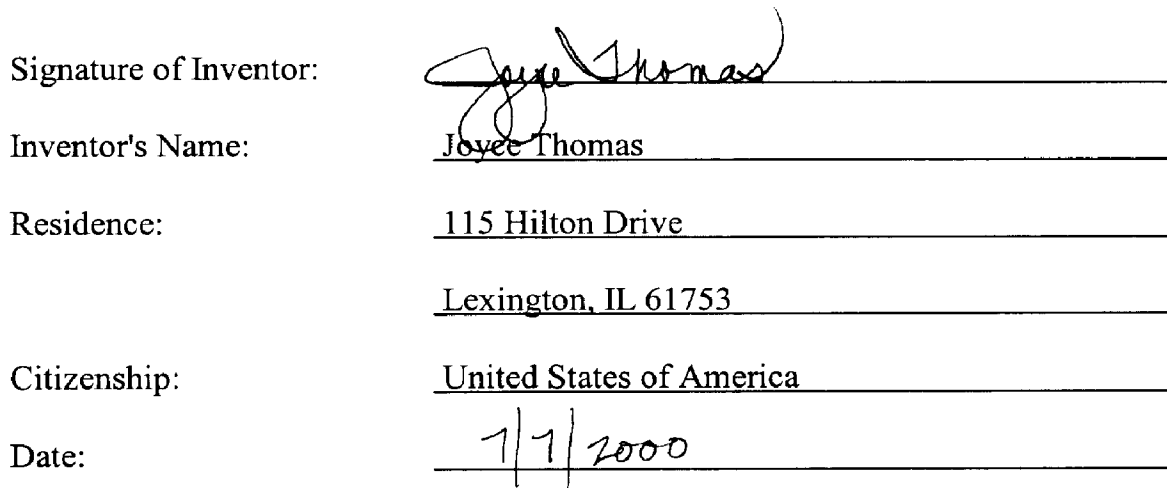 Signature of Inventor: Joyce Thomas
Inventor's Name: Joyce Thomas
Residence: 115 Hilton Drive
Lexington, IL 61753
Citizenship: United States of America
Date: 7/7/2000